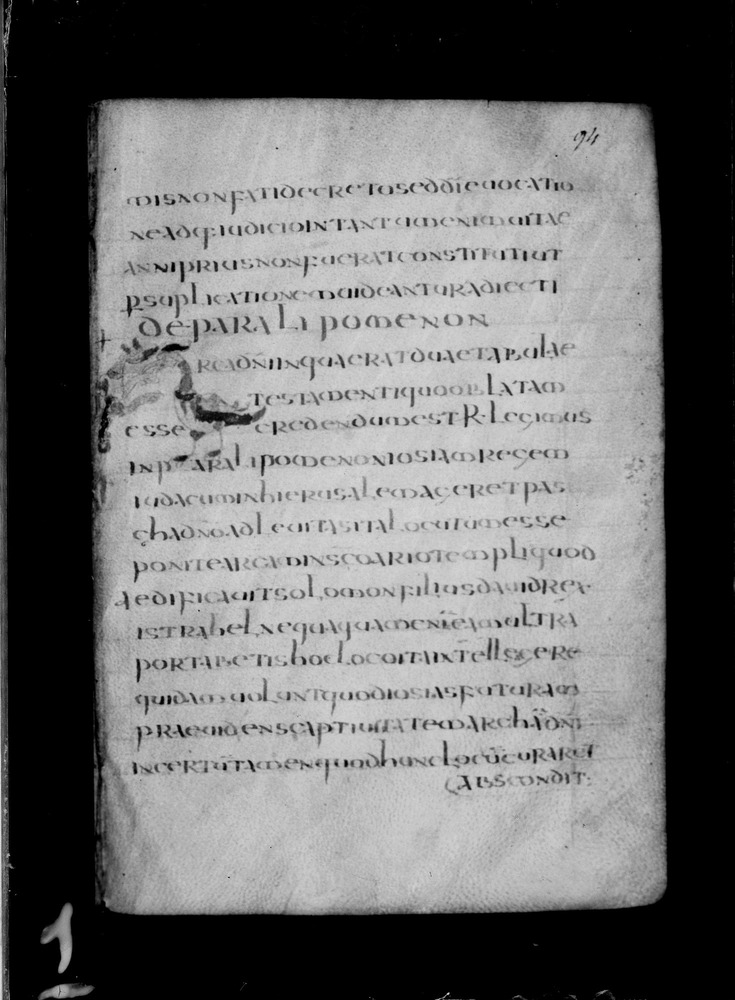 94
MISNONFATIDECRETOSEDDĪEUOCATIO
NEADQ·IUDICIOINTANTUMENIMUITAE
ANNIPRIUSNONFUERATCONSTITUTIUT
PSUPLICATIONEMUIDEANTURADIECTI
DE·PARALIPOMENON
ARCADN̄IINQUAERATDUAETABULAE
TESTAMENTIQUOOBLATAM
ESSE CREDENDUMEST R· LEGIMUS
INPARALIPOMENONIOSIAMREGEM
IUDACUMINHIERUSALEMAGERETPAS
CHADN̄OADLEUITASITALOCUTUMESSE
PONITEARCAMINSCOARIOTEMPLIQUOD
AEDIFICAUITSOLOMONFILIUSDAUIDREX
ISTRAHELNEQUAQUAMENIEAMULTRA
PORTABETISHOCLOCOITAINTELLEGERE
QUIDAMUOLUNTQUODIOSIASFUTURAM
PRAEUIDENSCAPTIUITATEMARCHĀDN̄I
INCERTŪTAMENQUODHUNCLOCŪCURARET
ABSCONDIT:
1